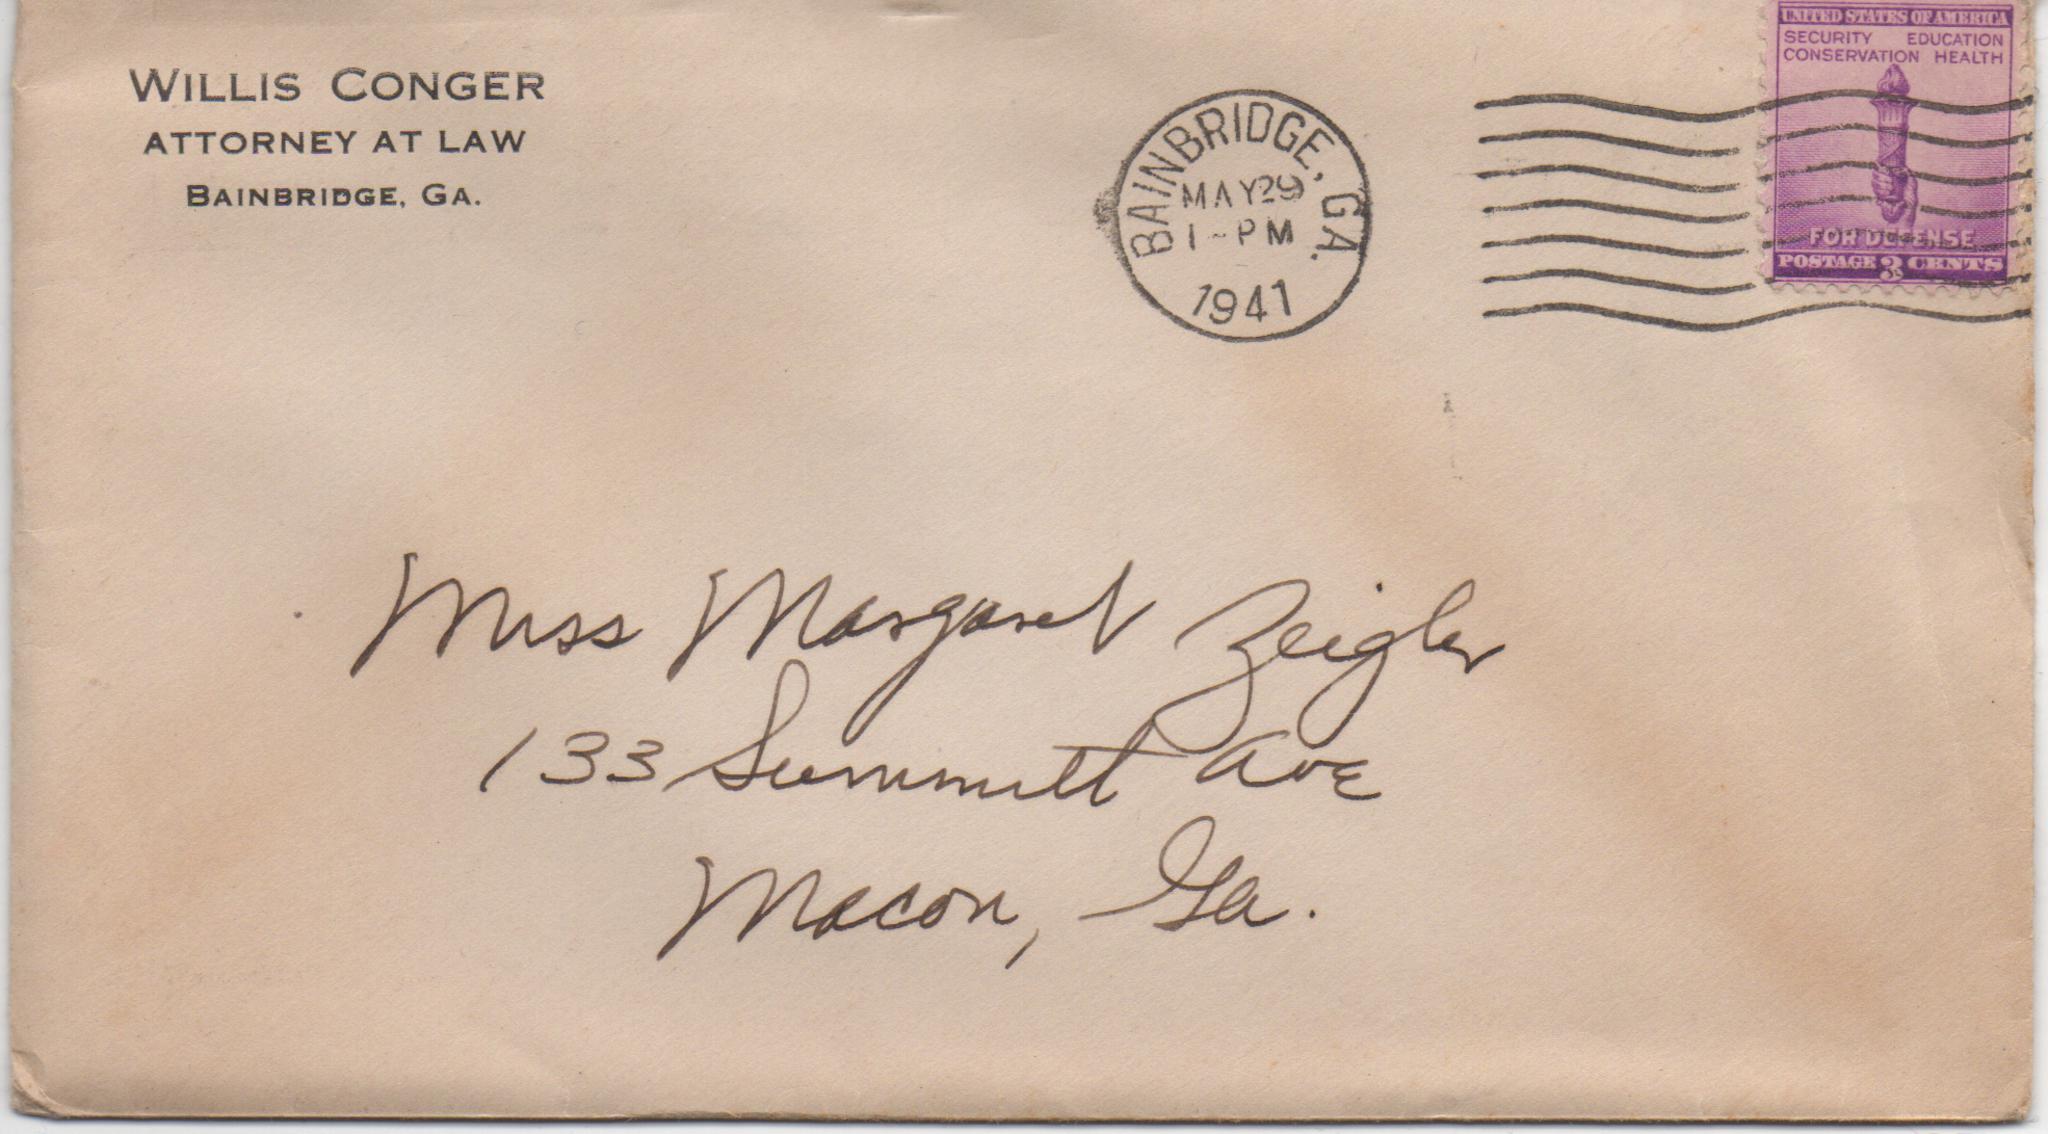 WILLIS CONGER
ATTORNEY AT LAW
BAINBRIDGE, GA.
BAINBRIDGE, GA.
MAY 29
1 - PM
1941
UNITED STATES OF AMERICA
SECURITY EDUCATION
CONSERVATION HEALTH
FOR DEFENSE
POSTAGE 3 CENTS
Miss Margaret Zeigler
133 Summitt Ave
Macon, Ga.